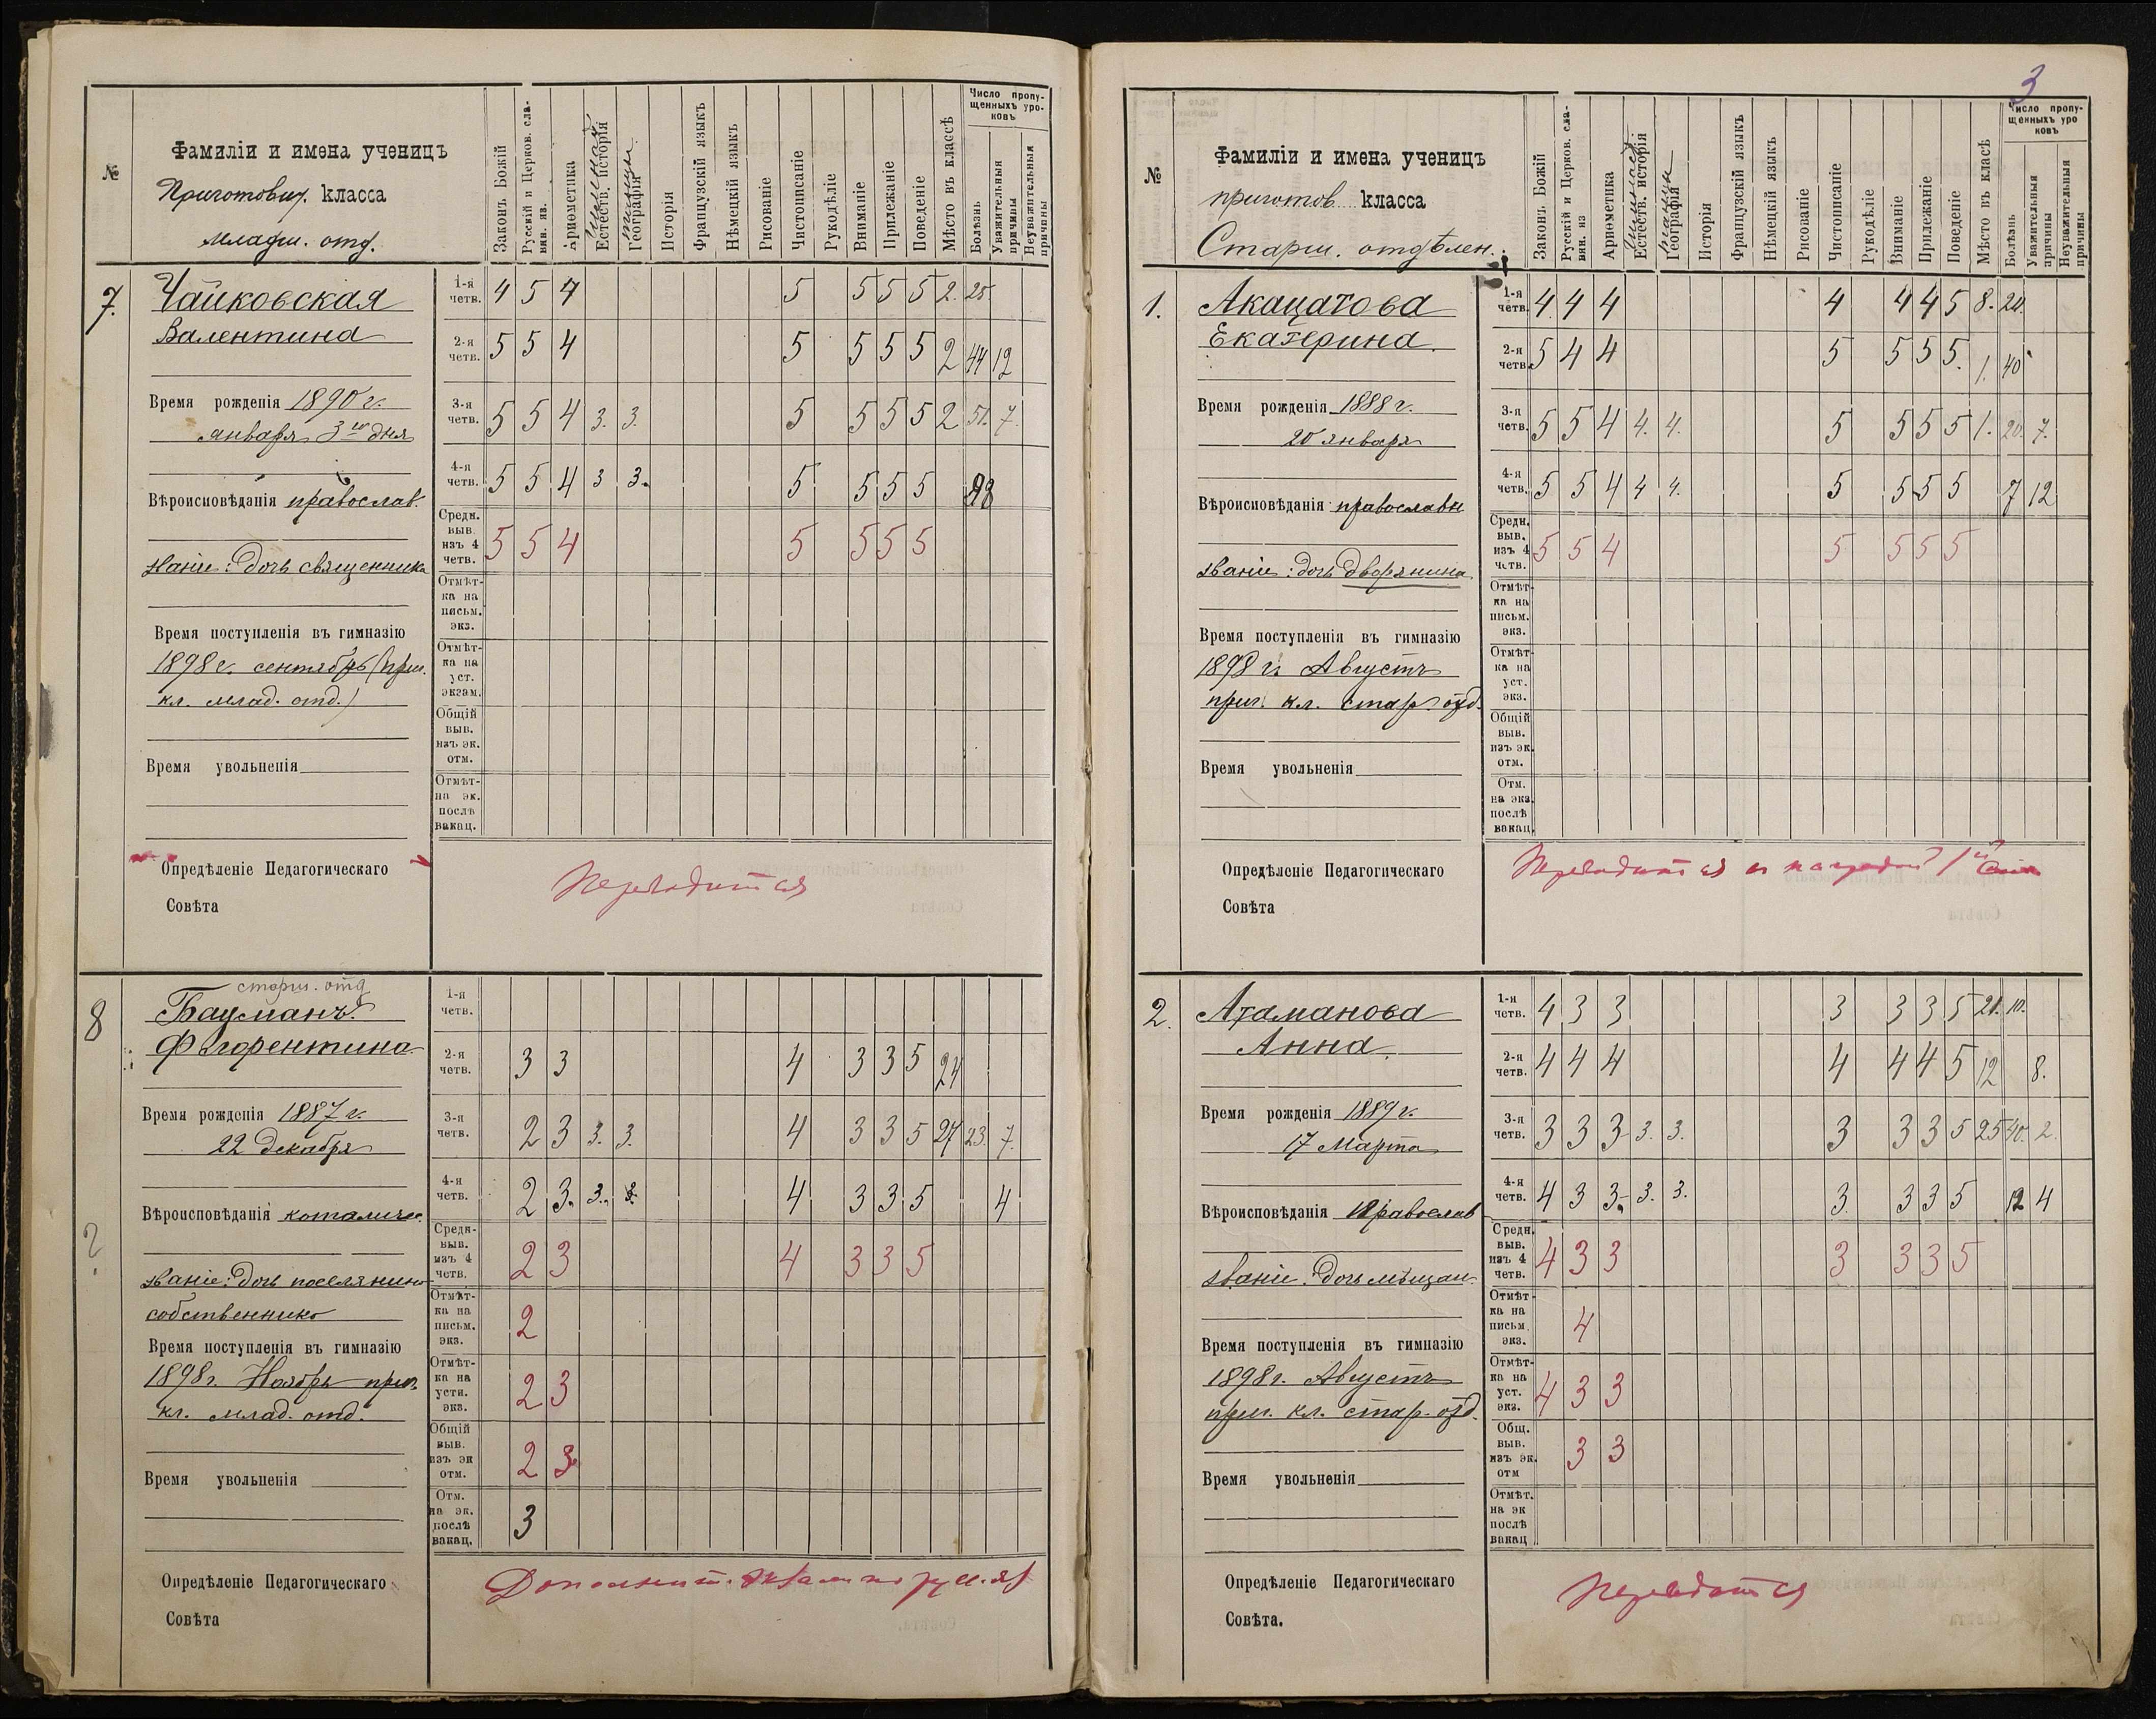 №
Фамиліи и имена ученицъ
Приготовит. класса
младш. отд.
Законъ Божій
Русскій и Церков. сла-
вян. яз.
Ариѳметика
Естеств. исторія
Географія
Исторія
Французскій языкъ
Нѣмецкій языкъ
Рисованіе
Чистописаніе
Рукодѣліе
Вниманіе
Прилежаніе
Поведеніе
Мѣсто въ классѣ
Число пропу-
щенныхъ уро-
ковъ
Болѣзнь
Уважительныя
причины
Неуважительныя
причины
7. Чайковская
Валентина
Время рожденія 1890 г.
января 3го дня
Вѣроисповѣданія православ.
званіе: дочь священника
Время поступленія въ гимназію
1898 г. сентябрь (приг.
кл. млад. отд.)
Время увольненія
1-я четв. 4 5 4 5 5 5 5 2. 25.
2-я четв. 5 5 4 5 5 5 5 2 44 12
3-я четв. 5 5 4 3. 3. 5 5 5 5 2 51. 7.
4-я четв. 5 5 4 3 3. 5 5 5 5 98
Средн. выв. изъ 4 четв. 5 5 4 5 5 5 5
Отмѣт-ка на письм. экз.
Отмѣт-ка на уст. экзам.
Общій выв. изъ эк. отм.
Отмѣт-на эк. послѣ вакац.
Опредѣленіе Педагогическаго
Совѣта
Переводится
старш. отд
8 Бауманъ
Флорентина
Время рожденія 1887 г.
22 декабря
Вѣроисповѣданія католичес.
?
званіе: дочь поселянина
собственника
Время поступленія въ гимназію
1898 г. Ноябрь приг.
кл. млад. отд.
Время увольненія
1-я четв.
2-я четв. 3 3 4 3 3 5 24
3-я четв. 2 3 3. 3. 4 3 3 5 27 23. 7.
4-я четв. 2 3. 3. 3. 4 3 3 5 4
Средн- выв. изъ 4 четв. 2 3 4 3 3 5
Отмѣт-ка на письм. экз. 2
Отмѣт-ка на устн. экз. 2 3
Общій выв. изъ эк отм. 2 3
Отм. на эк. послѣ вакац. 3
Опредѣленіе Педагогическаго
Совѣта
Дополнит. экзам по русс. яз
3
№
Фамиліи и имена ученицъ
приготов. класса
Старш. отдѣлен.
Законъ Божій
Русскій и Церков. сла-
вян. яз
Ариѳметика
Естеств. исторія
Географія
Исторія
Французскій языкъ
Нѣмецкій языкъ
Рисованіе
Чистописаніе
Рукодѣліе
Вниманіе
Прилежаніе
Поведеніе
Мѣсто въ класѣ
Число пропу-
щенныхъ уро
ковъ
Болѣзнь
Уважительныя
причины
Неуважительныя
причины
1. Акацатова
Екатерина.
Время рожденія 1888 г.
20 января
Вѣроисповѣданія православн
званіе: дочь дворянина
Время поступленія въ гимназію
1898 г. Августъ
приг. кл. стар. отд.
Время увольненія
1-я четв. 4 4 4 4 4 4 5 8. 20.
2-я четв. 5 4 4 5 5 5 5. 1. 40
3-я четв. 5 5 4 4. 4. 5 5 5 5 1. 20. 7.
4-я четв. 5 5 4 4 4. 5 5 5 5 7 12
Средн. выв. изъ 4 четв. 5 5 4 5 5 5 5
Отмѣт-ка на письм. экз.
Отмѣт-ка на уст. экз.
Общій выв. изъ эк. отм.
Отм. на экз. послѣ вакац.
Опредѣленіе Педагогическаго
Совѣта
Переводится съ наградой 1й
2. Атаманова
Анна.
Время рожденія 1889 г.
17 Марта
Вѣроисповѣданія Православ
званіе: дочь мѣщан.
Время поступленія въ гимназію
1898 г. Августъ
приг. кл. стар. отд.
Время увольненія
1-я четв. 4 3 3 3 3 3 5 21. 10.
2-я четв. 4 4 4 4 4 4 5 12 8.
3-я четв. 3 3 3 3. 3. 3 3 3 5 25 40. 2.
4-я четв. 4 3 3 3. 3. 3. 3 3 5 12 4
Средн. выв. изъ 4 четв. 4 3 3 3 3 3 5
Отмѣт-ка на письм. экз. 4
Отмѣт-ка на уст. экз. 4 3 3
Общ. выв. изъ эк. отм 3 3
Отмѣт. на эк послѣ вакац
Опредѣленіе Педагогическаго
Совѣта.
Переводится